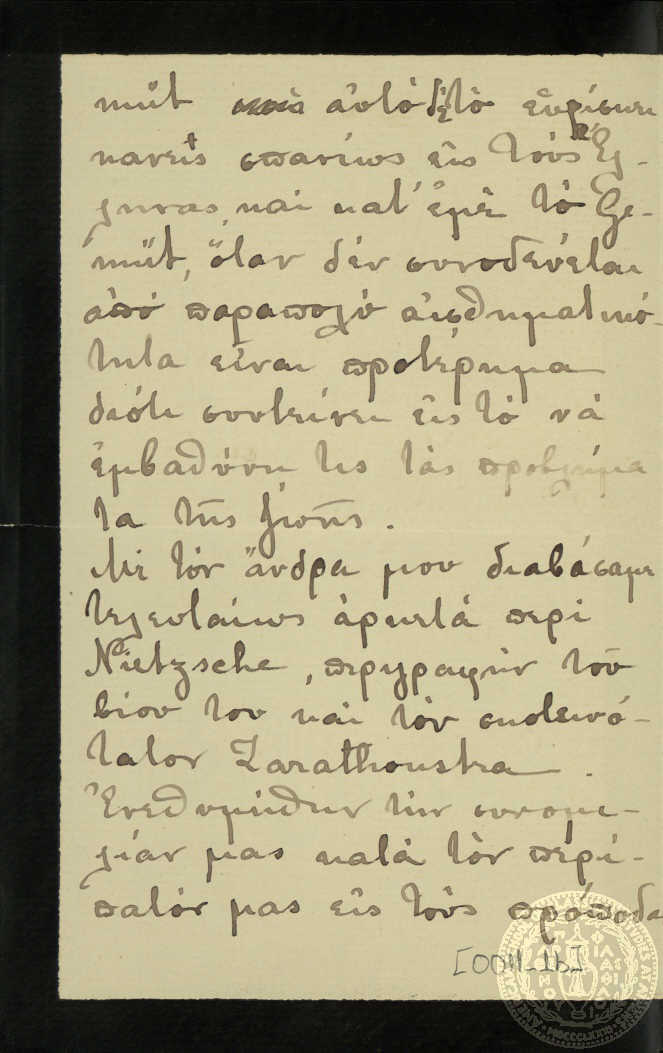 müt αὐτὸ δὲ τὸ εὑρίσκει
κανεὶς σπανίως εἰς τοὺς Ἕλ-
ληνας, καὶ κατ' ἐμὲ τὸ Ge-
müt, ὅταν δὲν συνοδεύεται
ἀπὸ παραπολὺ αἰσθηματικό-
τητα εἶναι προτέρημα
διότι συντείνει εἰς τὸ νὰ
ἐμβαθύνῃ τις τὰς προβλήμα
τα τῆς ζωῆς.
Μὲ τὸν ἄνδρα μου διαβάσαμε
τελευταίως ἀρκετὰ περὶ
Nietzsche, περιγραφὴν τοῦ
βίου του καὶ τὸν σκοτεινό-
τατον Zarathoustra.
Ἐνεθυμήθην τὴν συνομι-
λίαν μας κατὰ τὸν περί-
πατόν μας εἰς τοὺς πρόποδα
[0011_1b]